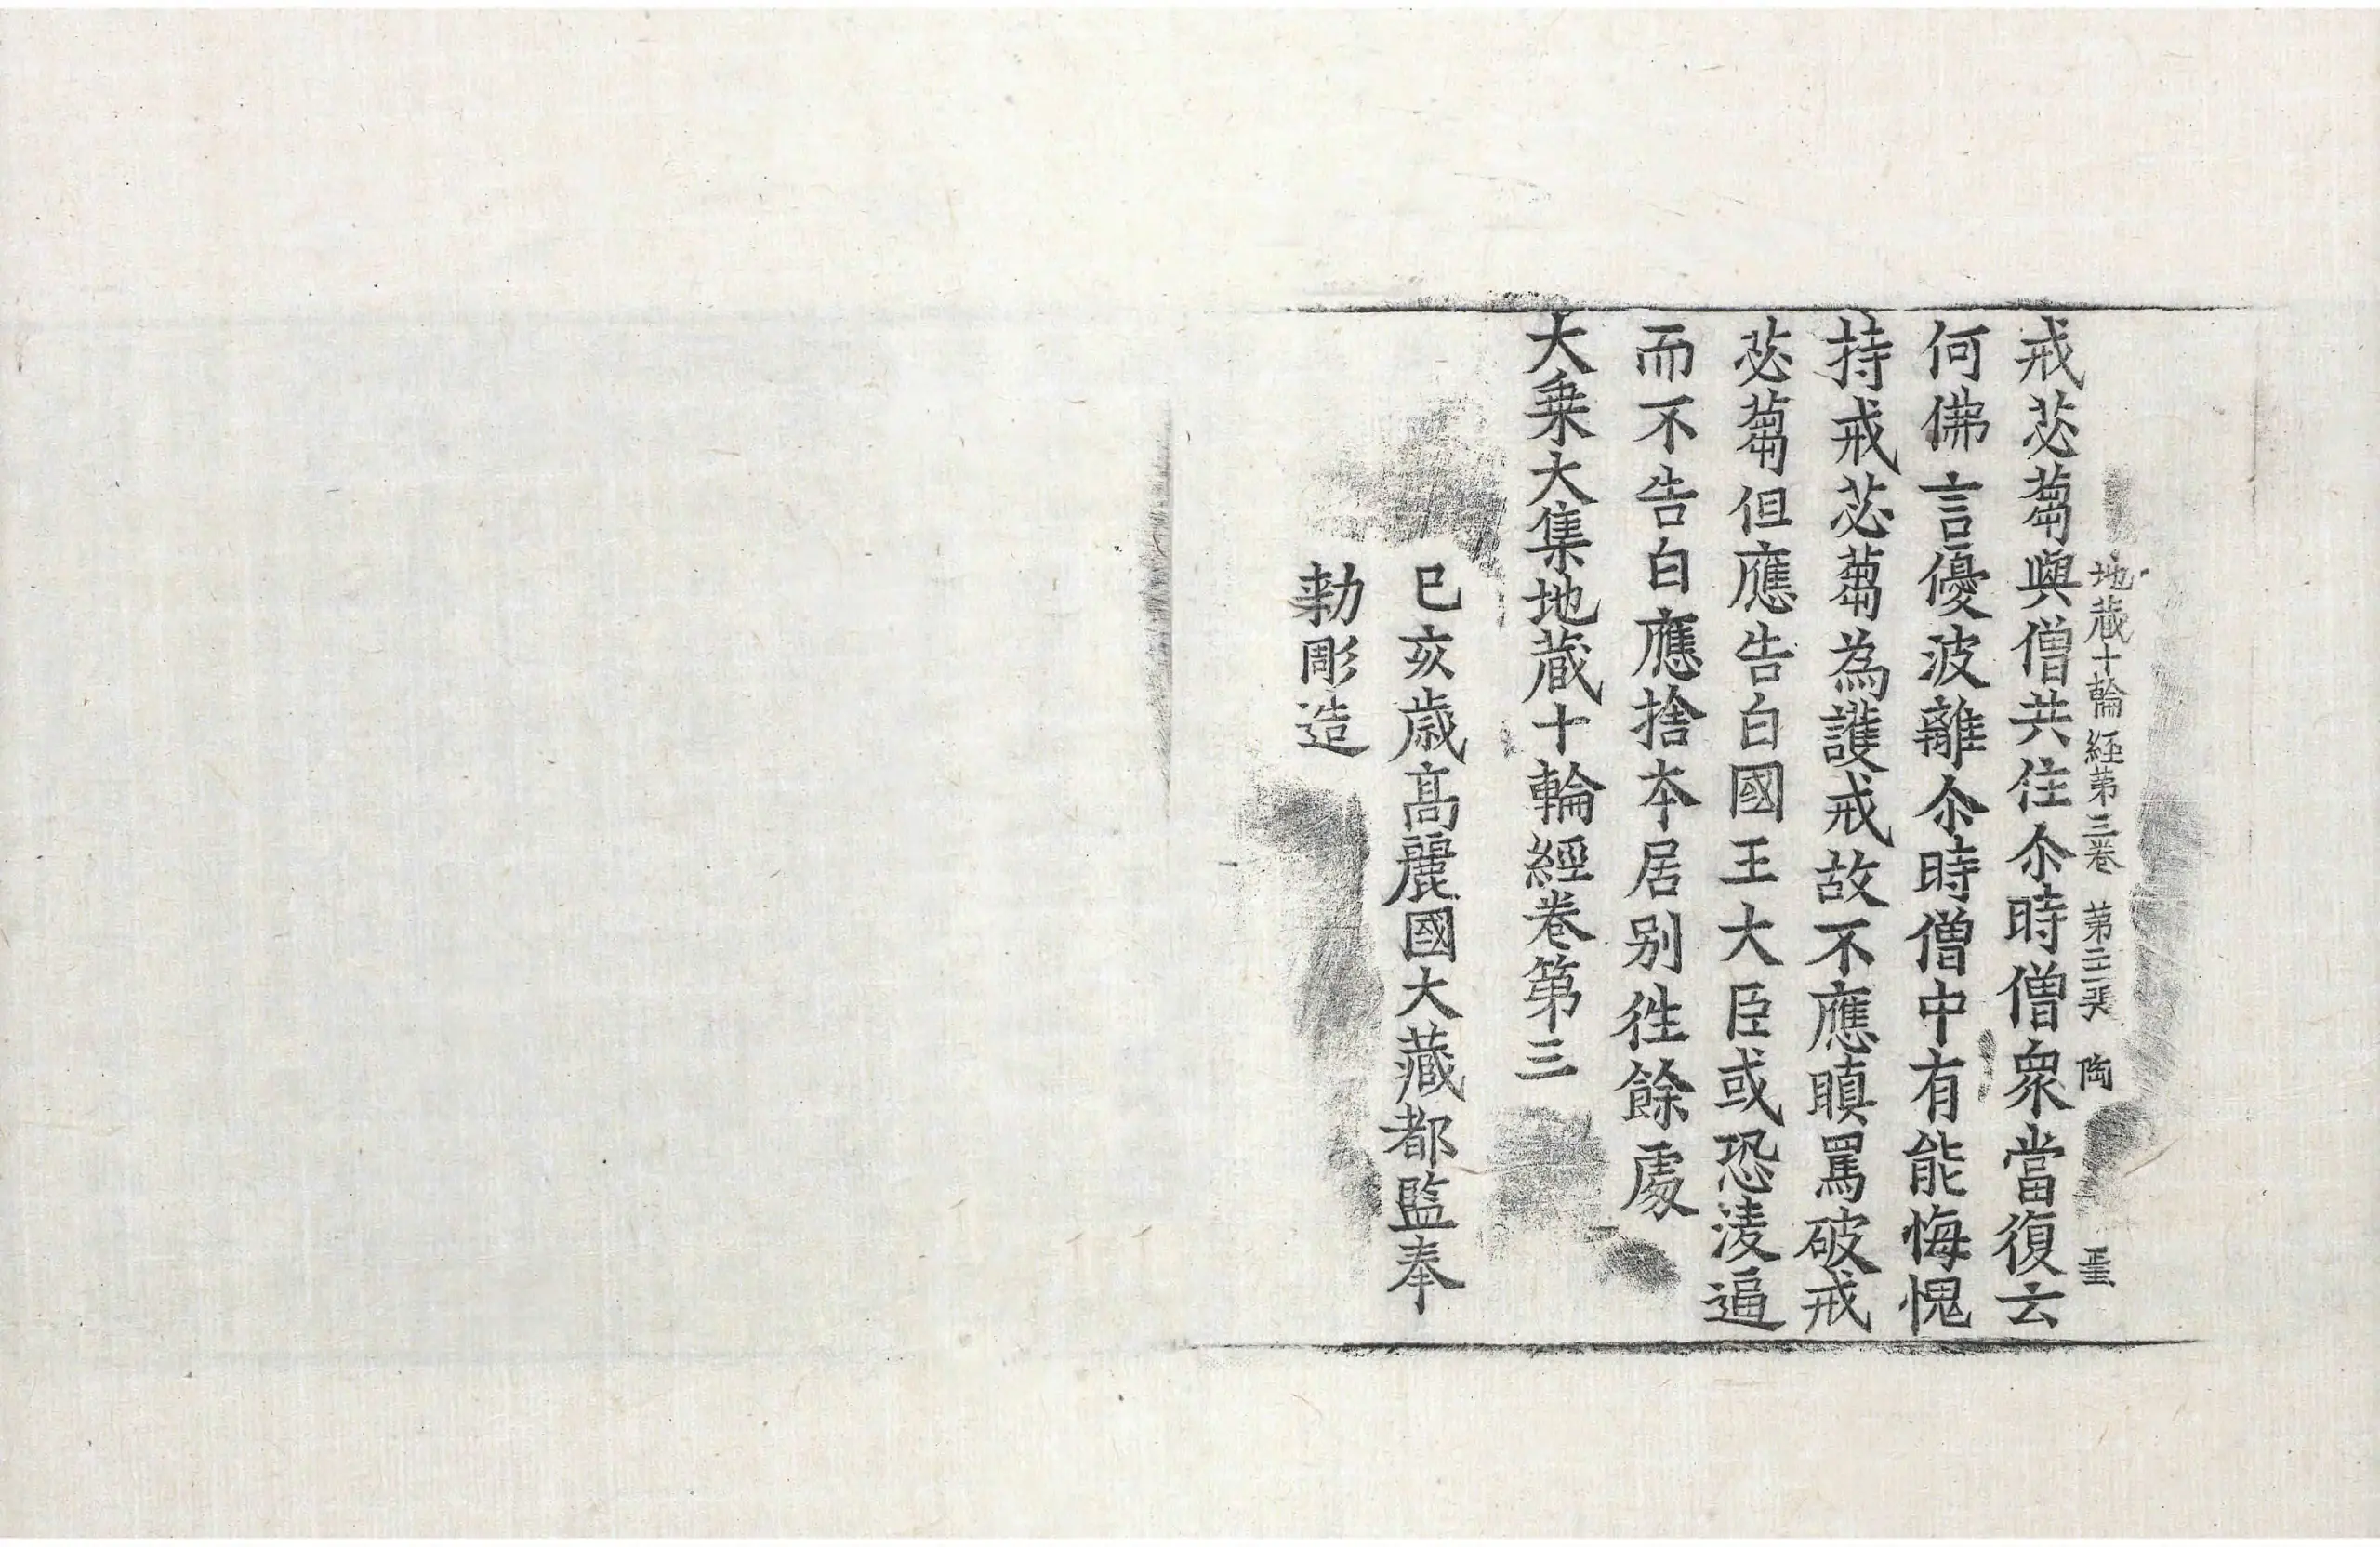 地蔵十輪経第三卷 第三張 陶
戒苾蒭與僧共住尒時僧衆當復云
何佛言優波離尒時僧中有能悔愧
持戒苾蒭為護戒故不應瞋罵破戒
苾蒭但應告白國王大臣或恐淩逼
而不告白應捨本居别徃餘處
大乗大集地蔵十輪經卷第三
己亥歳髙麗國大藏都監奉
勑彫造